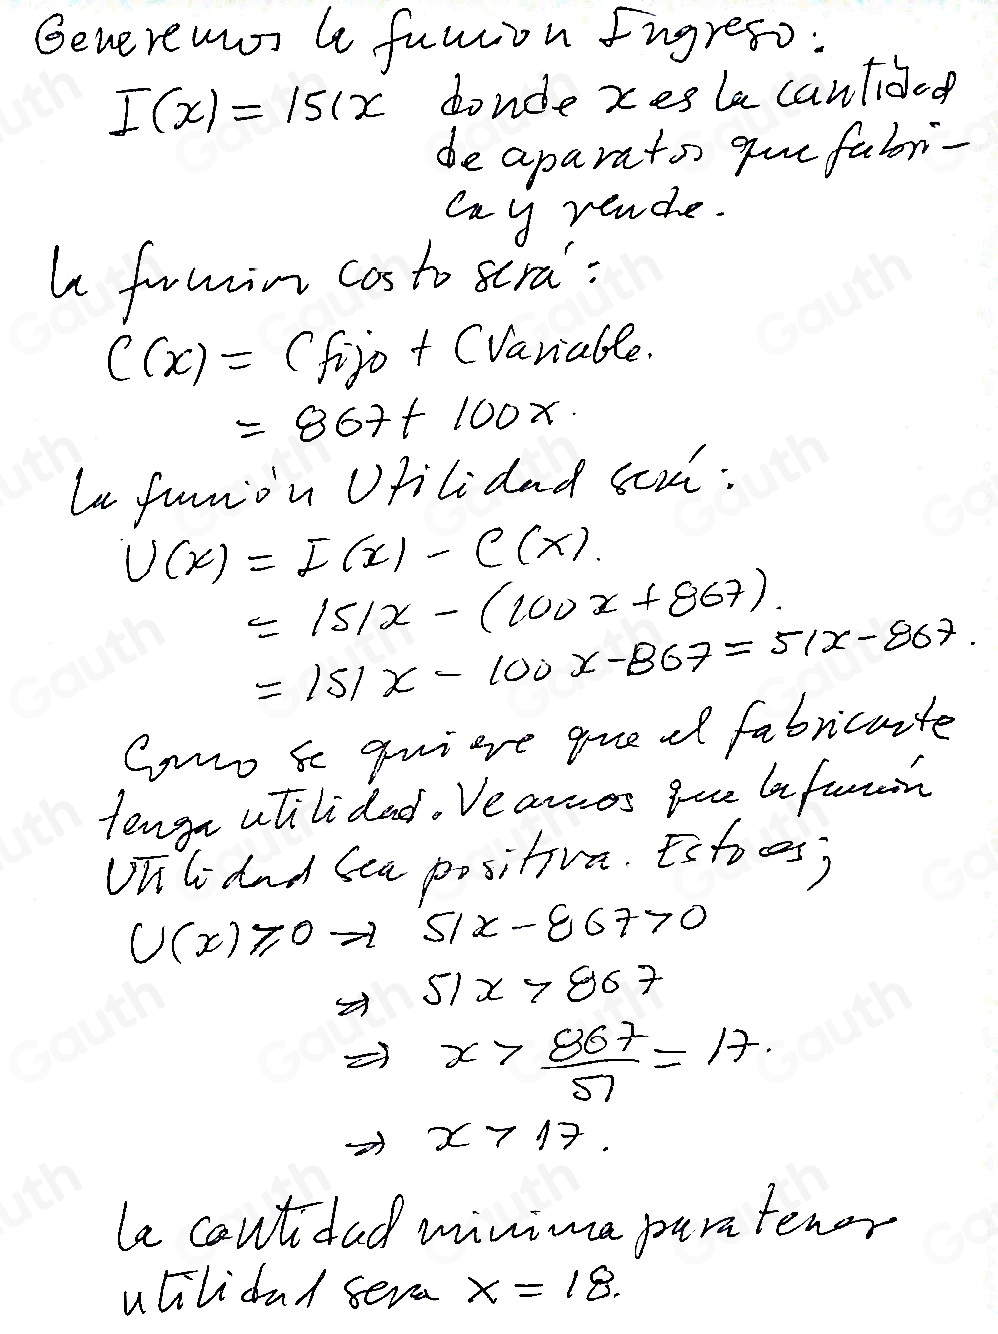 Generemos la funcion Ingreso:
I(x) = 151x donde x es la cantidad
de aparatos que fabri-
ca y vende.
la funcion costo será:
C(x) = C fijo + C Variable.
= 867 + 100x.
La función Utilidad será:
U(x) = I(x) - C(x).
= 151x - (100x + 867).
= 151x - 100x - 867 = 51x - 867.
Como se quiere que el fabricante
tenga utilidad. Veamos que la función
Utilidad sea positiva. Esto es;
U(x) ≥ 0 ⇒ 51x - 867 > 0
⇒ 51x > 867
⇒ x > 867/51 = 17.
⇒ x > 17.
la cantidad minima para tener
utilidad sera x = 18.